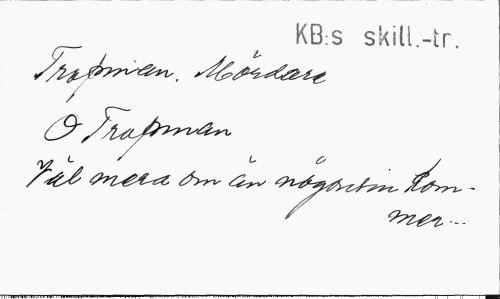 KB:s skill.-tr.
Trapman. Mördare
O Trapman
Väl mera om än någonsin kom-
mer...